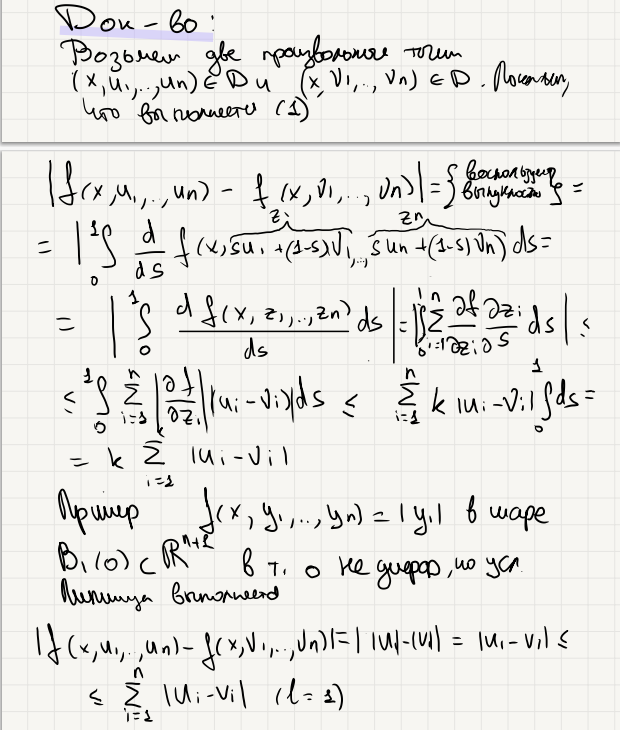 Док-во:
Возьмем две произвольные точки
(x, u₁,.., uₙ) ∈ D и (x, v₁,.., vₙ) ∈ D. Покажем,
что выполняется (1)
|f(x, u₁,.., uₙ) - f(x, v₁,.., vₙ)| = {воспользуемся выпуклостью} =
= |∫₀¹ d/ds f(x, su₁+(1-s)v₁,.., suₙ+(1-s)vₙ) ds =
z₁ zₙ
= |∫₀¹ d f(x, z₁,.., zₙ)/ds ds| = |∫₀¹ Σᵢ₌₁ⁿ ∂f/∂zᵢ ∂zᵢ/∂s ds| ≤
≤ ∫₀¹ Σᵢ₌₁ⁿ |∂f/∂zᵢ| |(uᵢ-vᵢ)| ds ≤ Σᵢ₌₁ⁿ k |uᵢ-vᵢ| ∫₀¹ ds =
= k Σᵢ₌₁ⁿ |uᵢ-vᵢ|
Пример f(x, y₁,.., yₙ) = |y₁| в шаре
B₁(0) ⊂ ℝⁿ⁺¹ в т. 0 не дифф, но усл.
Липшица выполняется
|f(x, u₁,.., uₙ) - f(x, v₁,.., vₙ)| = | |u₁|-|v₁| = |u₁-v₁| ≤
≤ Σᵢ₌₁ⁿ |uᵢ-vᵢ| (l=1)